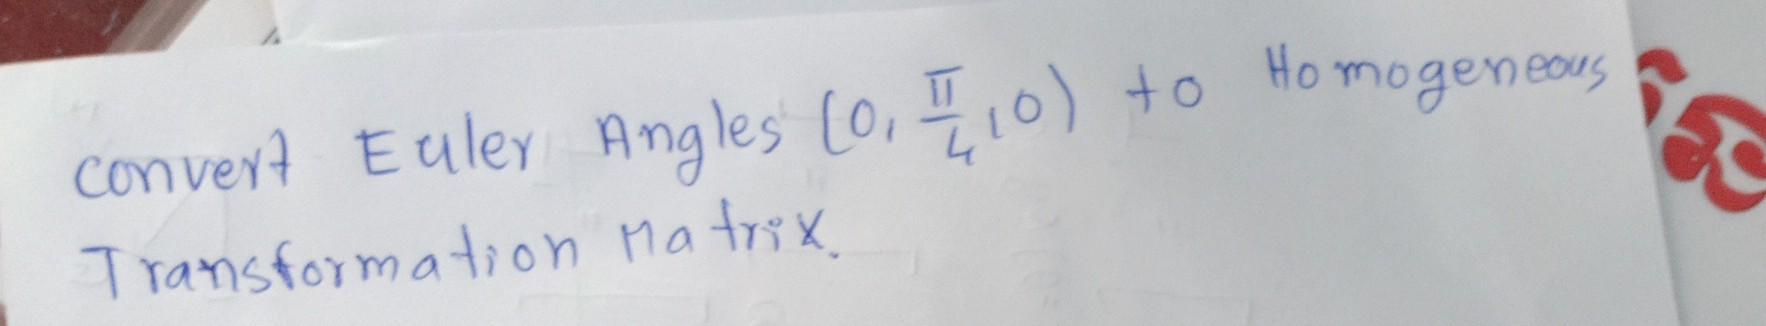 convert Euler Angles (0, π/4, 0) to Homogeneous
Transformation Matrix.